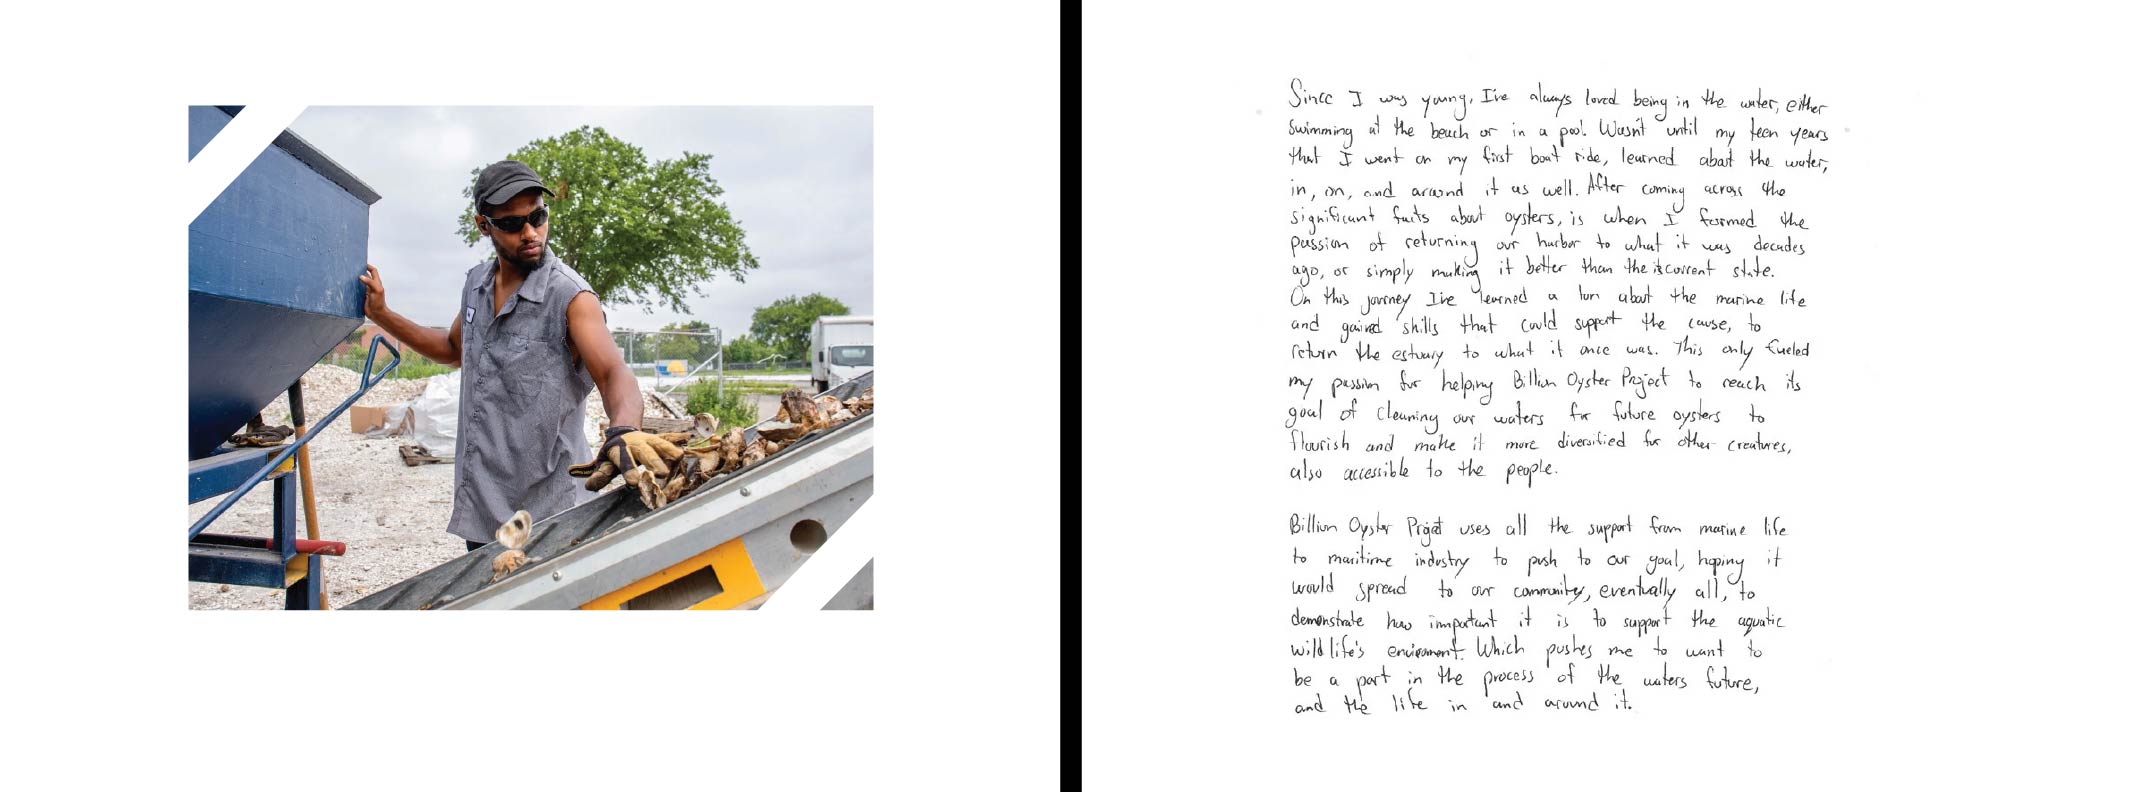 Since I was young, I've always loved being in the water, either
swimming at the beach or in a pool. Wasn't until my teen years
that I went on my first boat ride, learned about the water,
in, on, and around it as well. After coming across the
significant facts about oysters, is when I formed the
passion of returning our harbor to what it was decades
ago, or simply making it better than the is current state.
On this journey I've learned a ton about the marine life
and gained skills that could support the cause, to
return the estuary to what it once was. This only fueled
my passion for helping Billion Oyster Project to reach its
goal of cleaning our waters for future oysters to
flourish and make it more diversified for other creatures,
also accessible to the people.
Billion Oyster Project uses all the support from marine life
to maritime industry to push to our goal, hoping it
would spread to our community, eventually all, to
demonstrate how important it is to support the aquatic
wildlife's enviroment. Which pushes me to want to
be a part in the process of the waters future,
and the life in and around it.